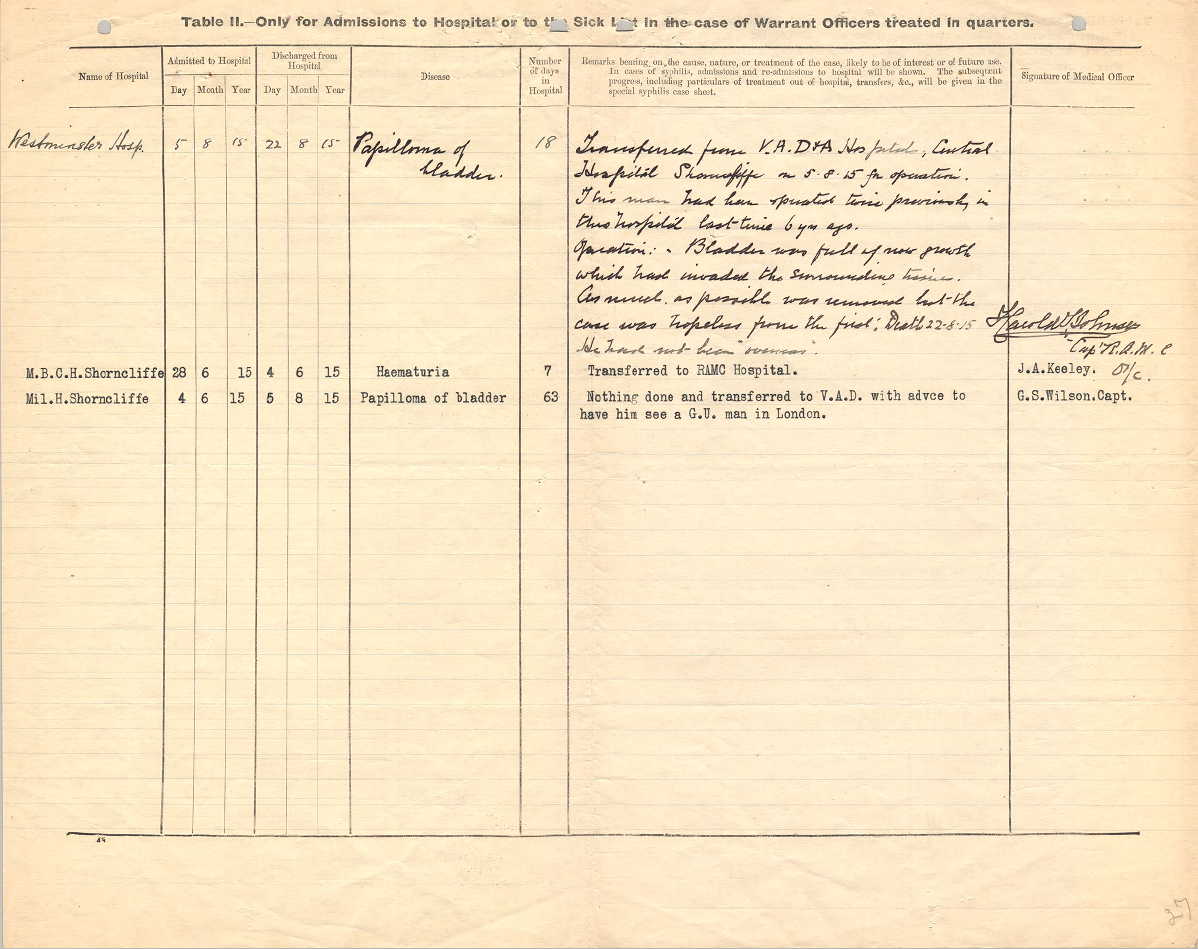 Table II.—Only for Admissions to Hospital or to the Sick List in the case of Warrant Officers treated in quarters.
Name of Hospital
Admitted to Hospital
Day Month Year
Discharged from Hospital
Day Month Year
Disease
Number
of days
in
Hospital
Remarks bearing on the cause, nature, or treatment of the case, likely to be of interest or of future use.
In cases of syphilis, admissions and re-admissions to hospital will be shown. The subsequent
progress, including particulars of treatment out of hospital, transfers, &c., will be given in the
special syphilis case sheet.
Signature of Medical Officer
Westminster Hosp. 5 8 15 22 8 15 Papilloma of
bladder.
18
Transferred from V.A.D Hospital, Central
Hospital Shorncliffe on 5.8.15 for operation.
This man had been operated twice previously in
this hospital last time 6 yrs ago.
Operation: - Bladder was full of new growth
which had invaded the surrounding tissues.
As much as possible was removed but the
case was hopeless from the first; Death 22.8.15
He had not been "overseas".
Harold Johnson
Capt R.A.M.C
O/c.
M.B.C.H.Shorncliffe 28 6 15 4 6 15 Haematuria 7 Transferred to RAMC Hospital. J.A.Keeley.
Mil.H.Shorncliffe 4 6 15 5 8 15 Papilloma of bladder 63 Nothing done and transferred to V.A.D. with advce to G.S.Wilson.Capt.
have him see a G.U. man in London.
27